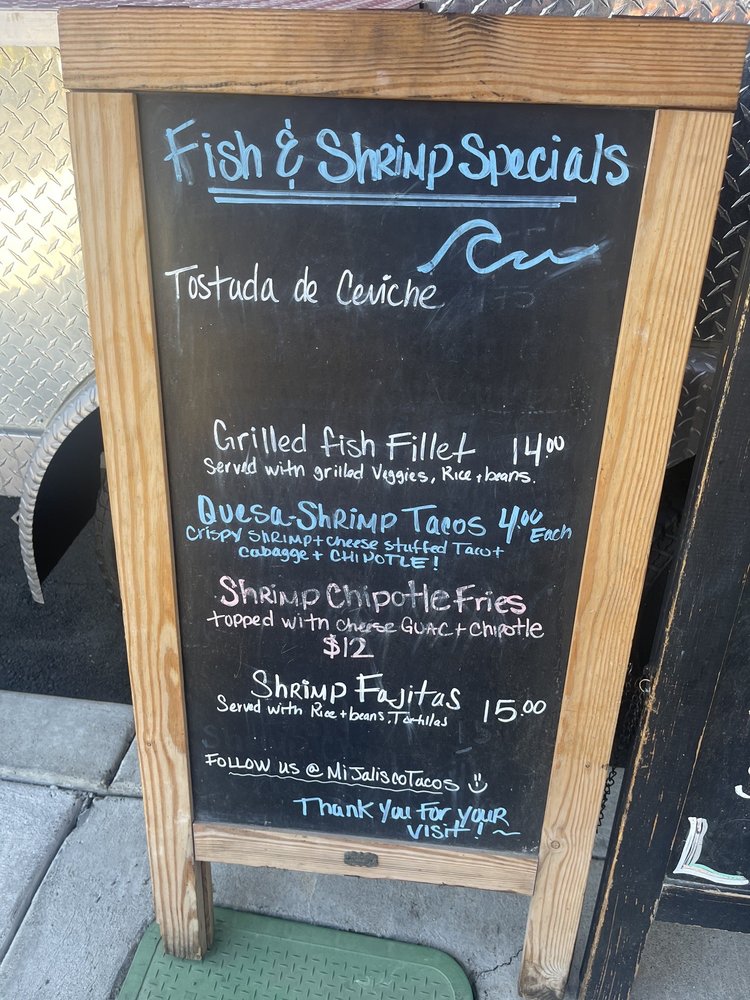 Fish & Shrimp Specials
Tostada de Ceviche
Grilled fish Fillet 14.00
Served with grilled Veggies, Rice + beans.
Quesa-Shrimp Tacos 4.00 Each
crispy shrimp + cheese stuffed Taco +
cabagge + CHIPOTLE!
Shrimp Chipotle Fries
topped with cheese GUAC + Chipotle
$12
Shrimp Fajitas 15.00
Served with Rice + beans, Tortillas
Follow us @ MiJaliscoTacos
Thank You For your
visit!